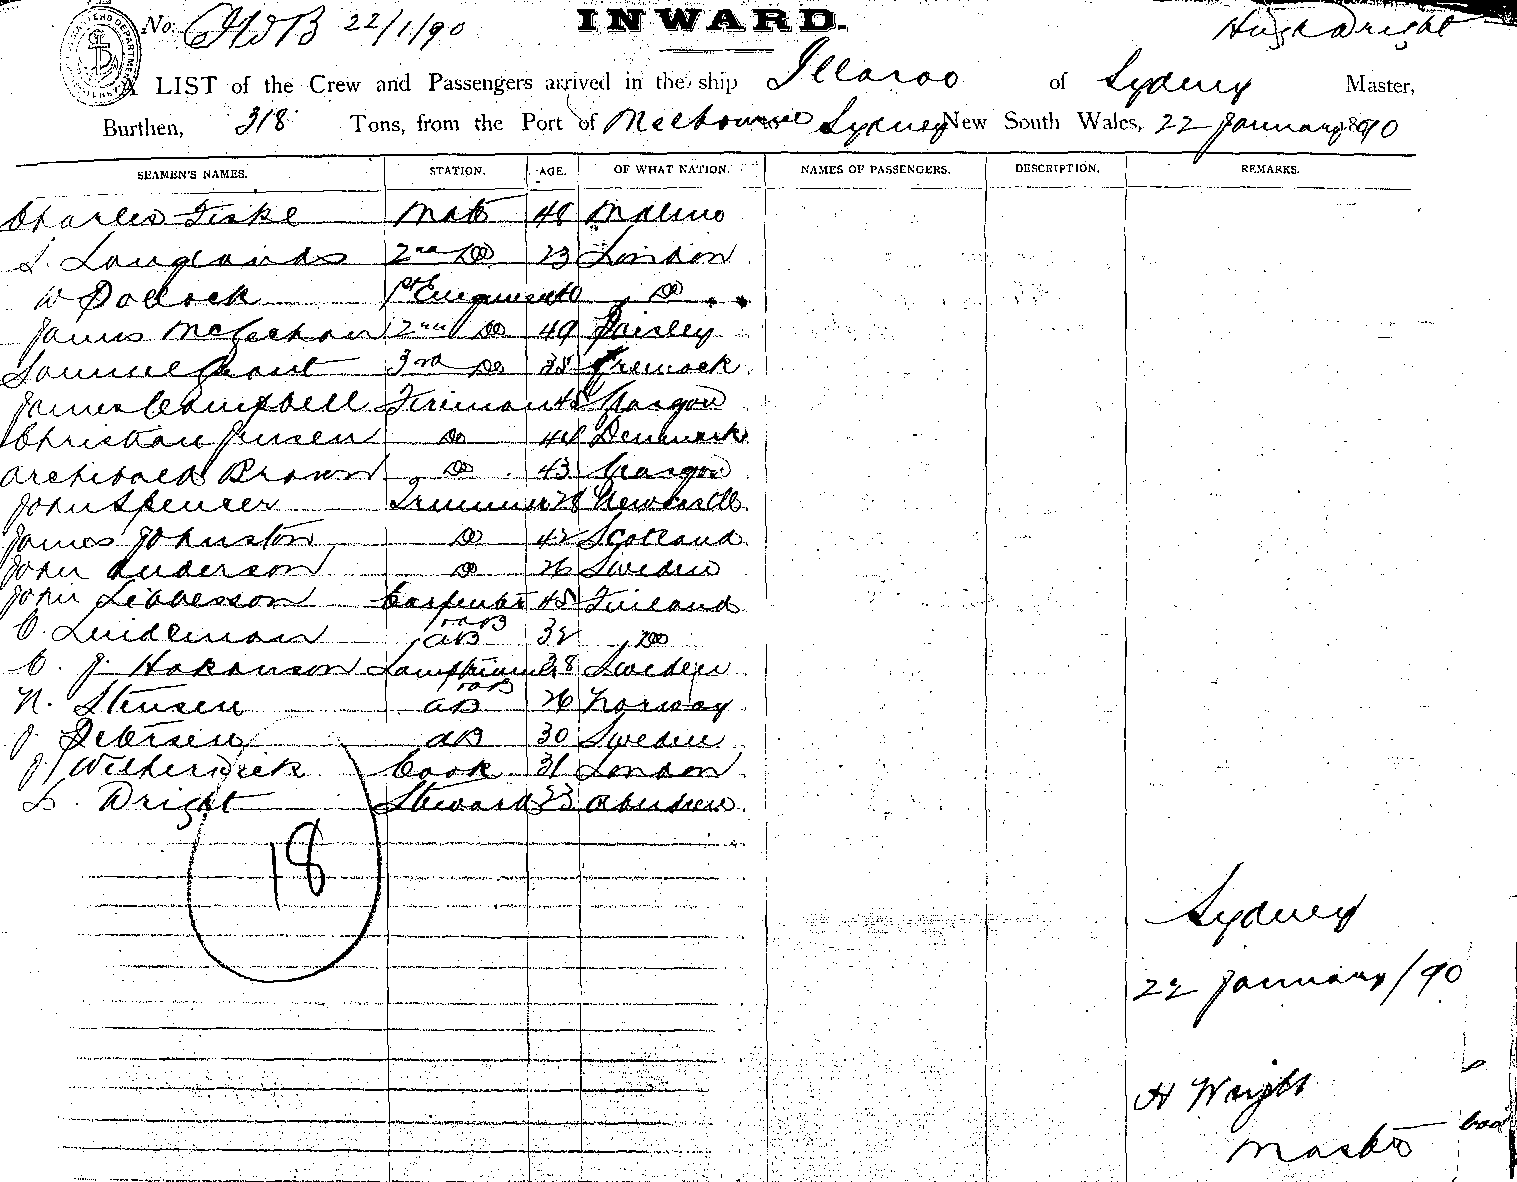 No. 22/1/90 INWARD. Hugh Wright
A LIST of the Crew and Passengers arrived in the ship Illaroo of Sydney Master,
Burthen, 318 Tons, from the Port of Melbourne to Sydney New South Wales, 22 January 1890
SEAMEN'S NAMES. STATION. AGE. OF WHAT NATION. NAMES OF PASSENGERS. DESCRIPTION. REMARKS.
Charles Fiske Mate 48 Malmo
L. Langlands 2nd Do 23 London
W Pollock 1st Engineer 40 Do
James McGechan 2nd Do 49 Paisley
Samuel Grant 3rd Do 35 Greenock
James Campbell Fireman 45 Glasgow
Christian Jensen Do 44 Denmark
Archibald Brown Do 43 Glasgow
John Spencer Trimmer 28 Newcastle
James Johnston Do 42 Scotland
John Anderson Do 26 Sweden
John Carpenter 45 Finland
C. Lindeman AB 32 Do
C. J. Hakanson Lamptrimmer 38 Sweden
N. Stensen AB 26 Norway
J. Petersen AB 30 Sweden
J. Witherwick Cook 31 London
L. Wright Steward 23 Aberdeen
18
Sydney
22 January/90
H Wright
Master